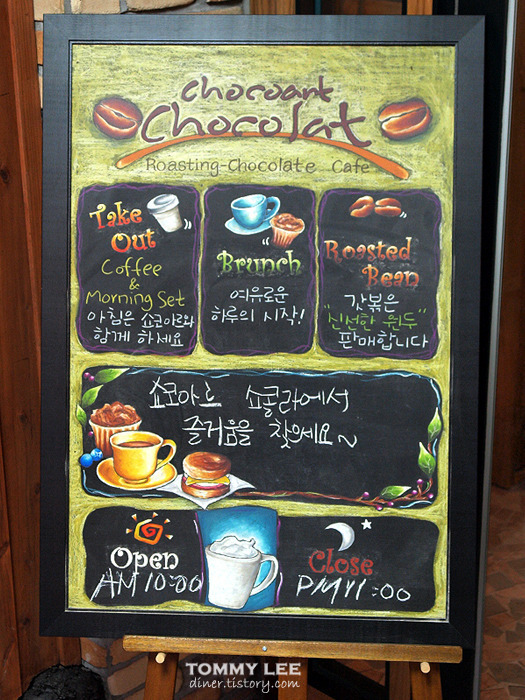 chocoart
Chocolat
Roasting-Chocolate Cafe
Take
Out
Coffee
&
Morning Set
아침은 쇼코아르와
함께 하세요
Brunch
여유로운
하루의 시작!
Roasted
Bean
갓볶은
"신선한 원두"
판매합니다
쇼코아르 쇼콜라에서
즐거움을 찾으세요~
Open
AM 10:00
Close
PM 11:00
TOMMY LEE
diner.tistory.com